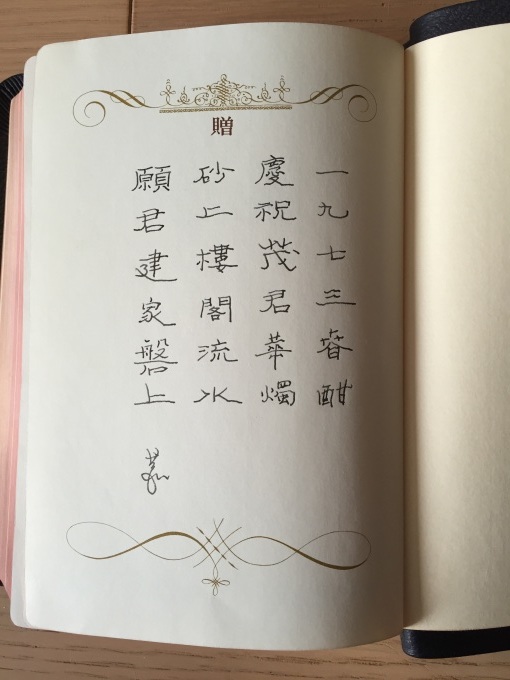 贈
一九七三春酣
慶祝茂君華燭
砂上樓閣流水
願君建家磐上